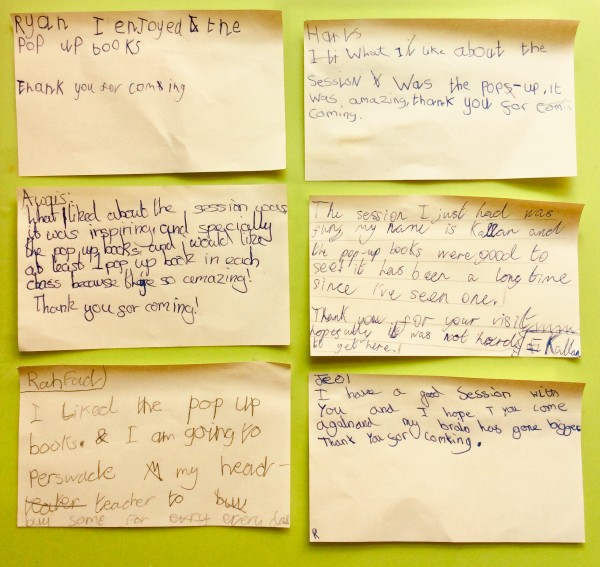 Ryan I enjoyed the
Pop up books
Thank you for coming
Haris
What I like about the
Session was the pops-up, it
was amazing, thank you for com
coming.
Awais:
What I liked about the session was
it was inspiring and specially
the pop up books and I would like
at least 1 pop up book in each
class because so amazing!
Thank you for coming!
The session I just had was
my name is Kallan and
the pop-up books were good to
see it has been a long time
since I've seen one!
Thank you for your visit
hopefully it was not
to get here! Kallan
Rahfad
I Liked the pop up
books. & I am going to
Perswade my head-
teacher to buy
buy some for every
Jeol
I have a good Session with
You and I hope you come
my brain has gone bigger
Thank You for coming.
R